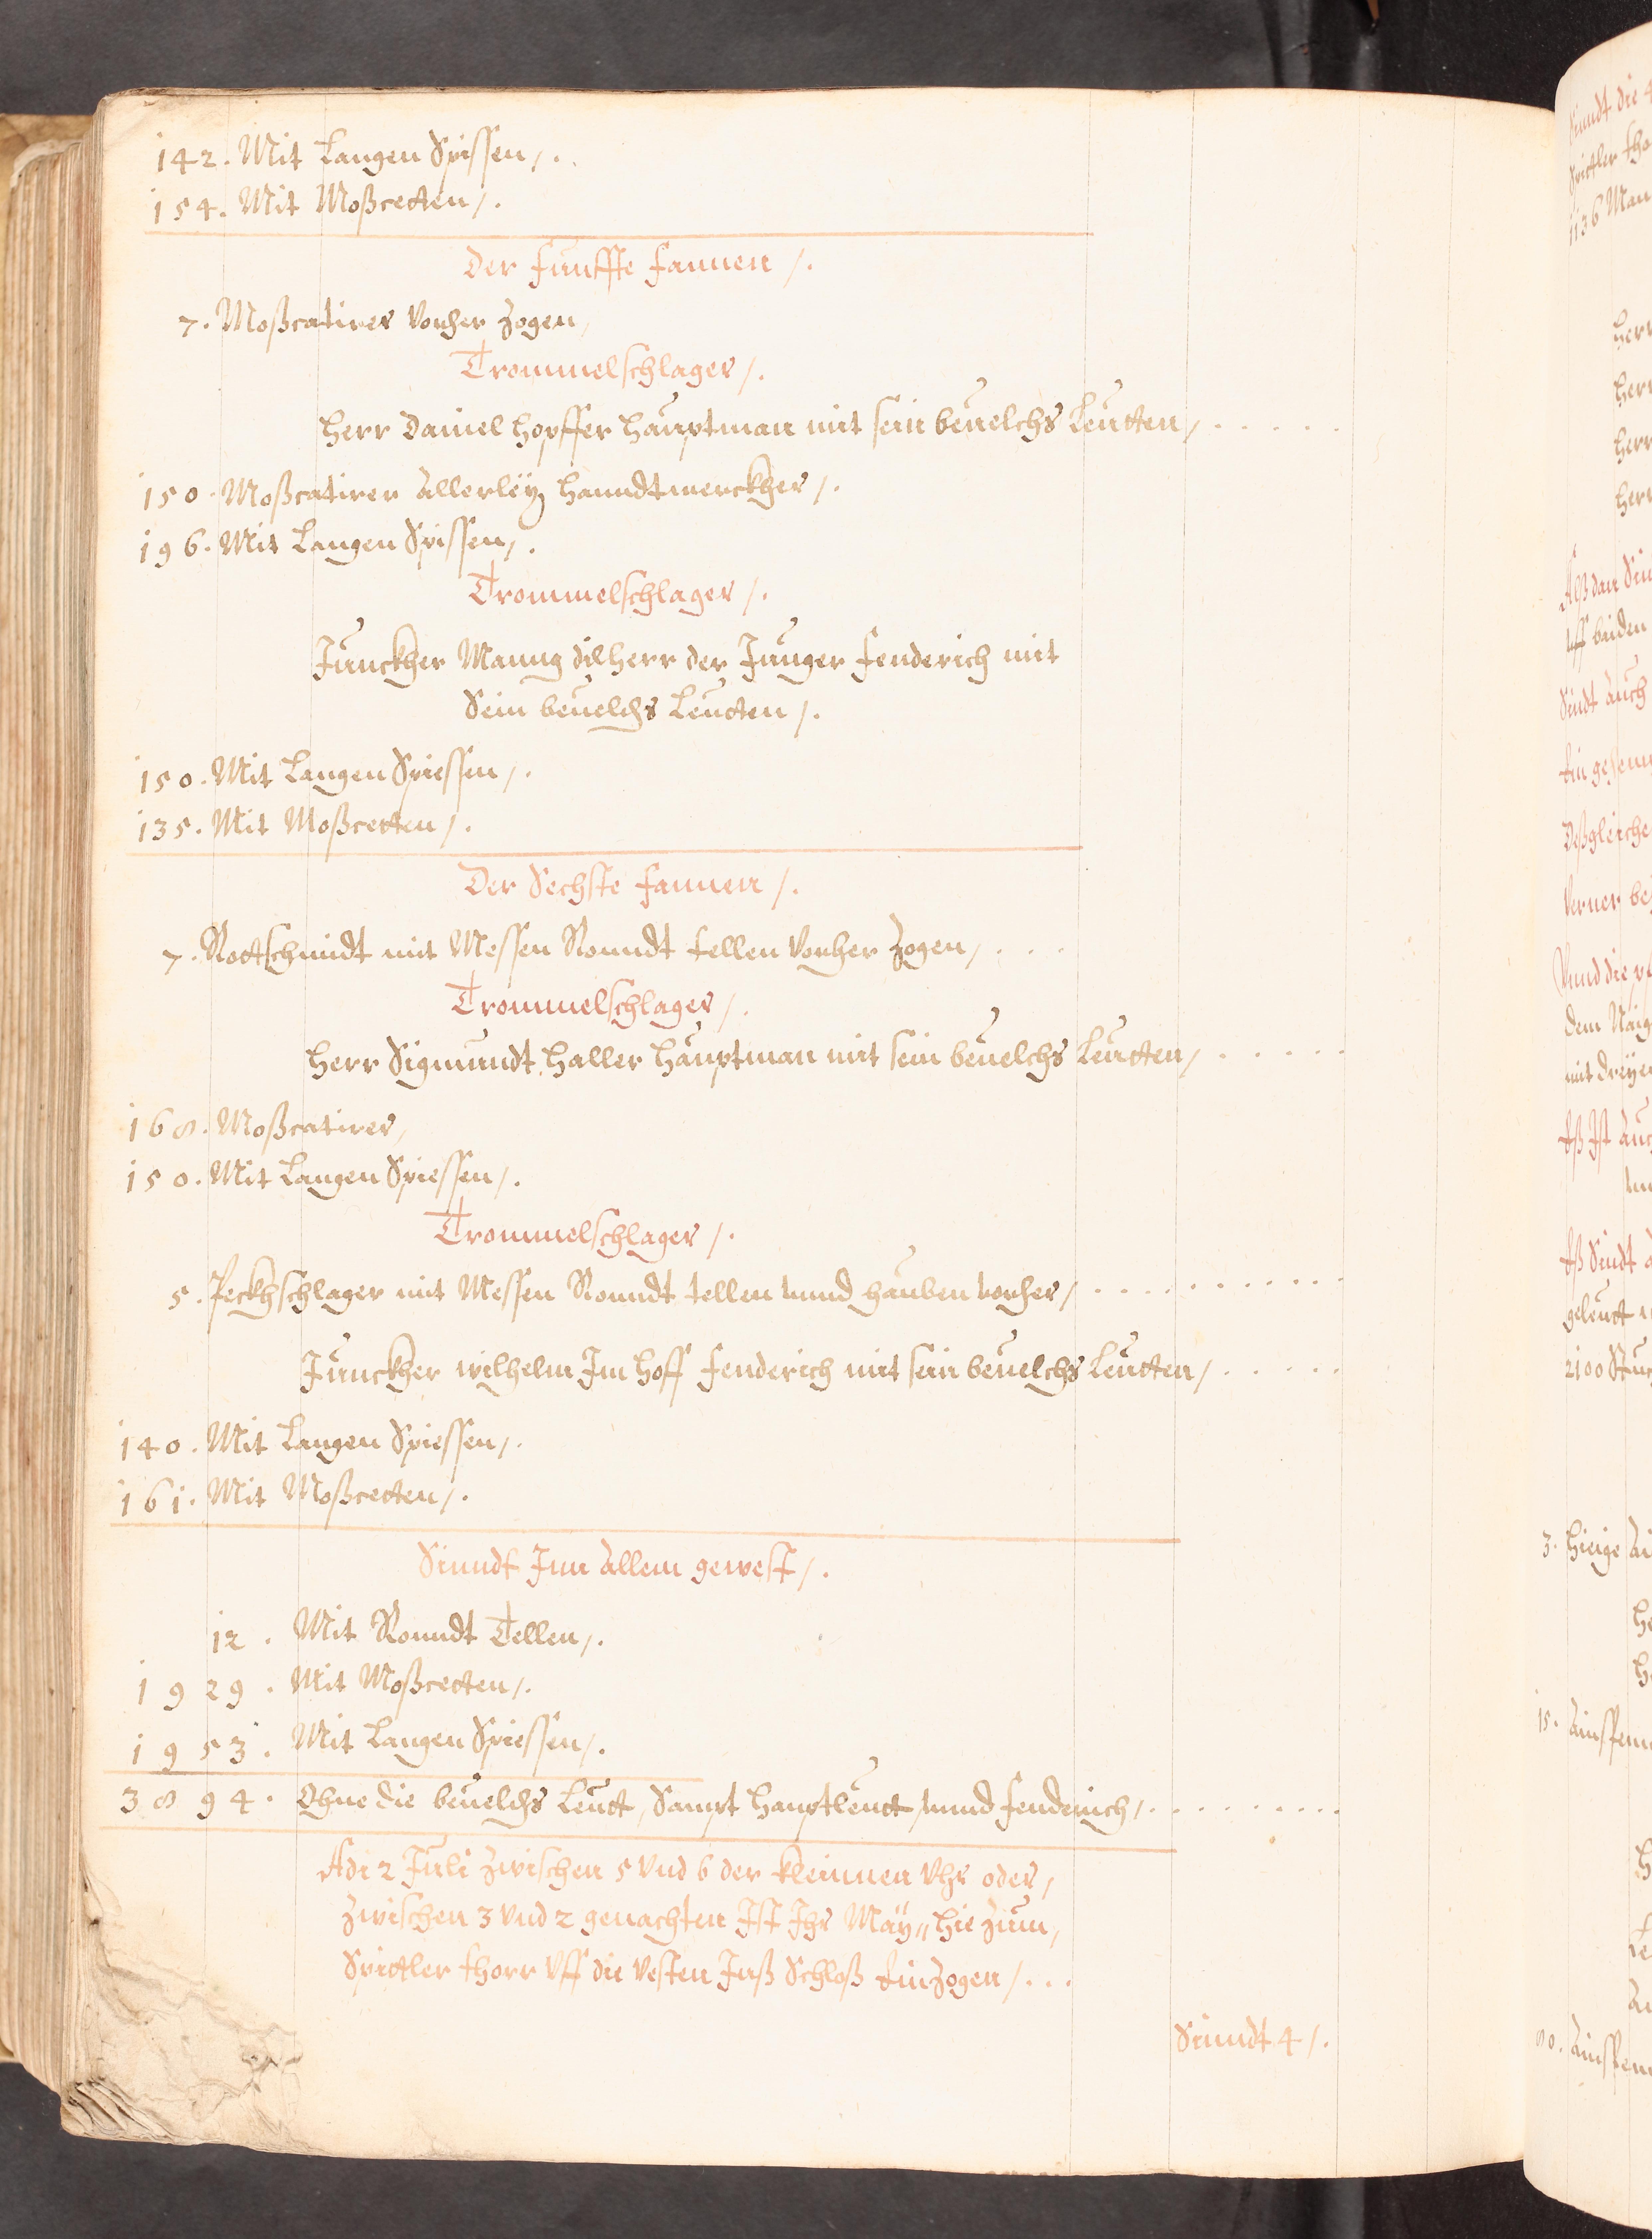 142. Mit Langen Spissen /. .
154. Mit Moßcetten /.
Der funffte fannen /.
7. Moßcatirer vorher Zogen,
Trommelschlager /.
Herr Daniel Hopffer Hauptman mit sein beuelchs Leutten / . . . . .
150. Moßcatirer Allerleÿ Hanndtwerckher /.
196. Mit Langen Spissen /.
Trommelschlager /.
Junckher Manng dilherr der Junger fenderich mit
Sein beuelchs Leutten /.
150. Mit Langen Spiessen /.
135. Mit Moßcetten /.
Der Sechste fannen /.
7. Rottschmidt mit Messen Ronndt tellen vorher Zogen / . . . .
Trommelschlager /.
Herr Sigmundt Haller Hauptman mit sein beuelchs Leutten / . . . . .
168. Moßcatirer,
150. Mit Langen Spiessen /.
Trommelschlager /.
5. Peckhschlager mit Messen Ronndt tellen vnnd hauben vorher / . . . . . . . . . . .
Junckher wilhelm Im Hoff fenderich mit sein beuelchs Leutten / . . . . .
140. Mit Langen Spiessen /.
161. Mit Moßcetten /.
Sinndt Inn Allem gewest /.
12. Mit Ronndt Tellen /.
1929. Mit Moßcetten /.
1953. Mit Langen Spiessen /.
3894. Ohne die beuelchs Leutt, Sampt Hauptleutt, vnnd fenderich / . . . . . . . . . .
Adi 2 Juli Zwischen 5 vnd 6 der kleinnen vhr oder,
Zwischen 3 vnd 2 genachten Ist Ihr Maÿ„ hie Zum,
Spittler thorr vff die vesten Inß Schloß EinZogen / . . .
Sinndt 4 /.
Sinndt die
Spittler
1136 Man
Herr
Herr
Herr
Herr
Alß dan
vff beiden
Sindt auch
Deßgleiche
Verner
Vnnd die
dem
mit dreÿen
Eß Ist Auch
Eß Sindt
geleutt
2100
3. Hieige
15.
80.